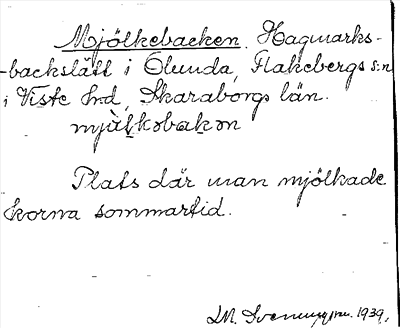 Mjölkebacken. Hagmarks-
-backslätt i Ölunda, Flakebergs s:n
i Viste hd, Skaraborgs län.
mjùl̥kəbakən
Plats där man mjölkade
korna sommartid.
1939.